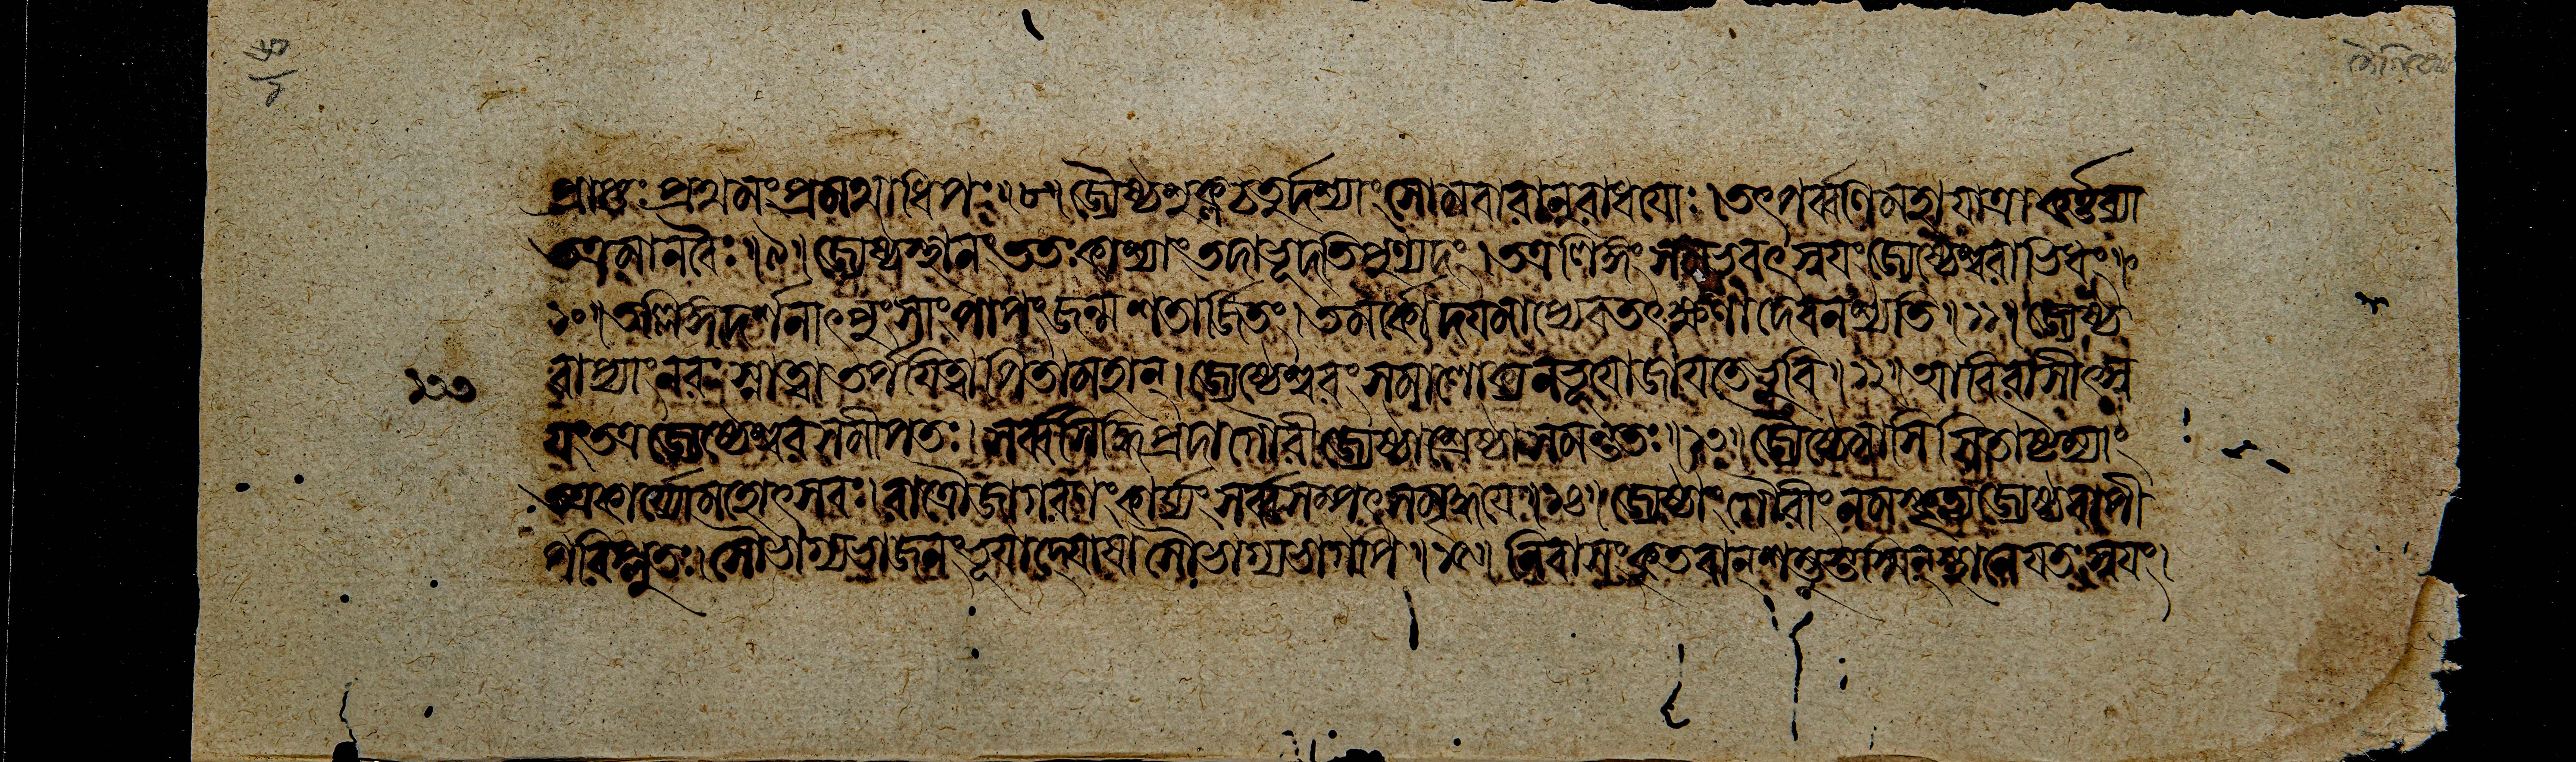 প্রাঞ্চঃ প্রথমং প্রমথাধিপ ॥ ৮ ॥ জ্যৈষ্ঠশুক্লচতুর্দশ্যাং সোমবারানুরাধয়োঃ । তৎপর্ব্বণি মহাযাত্রা কর্ত্তব্যা
তত্র মানবৈঃ ॥ ৯ ॥ জ্যেষ্ঠস্থানং ততঃ কাশ্যাং তদাভূদতিপুণ্যদং । তত্র লিঙ্গং সমভবৎ স্বয়ং জ্যেষ্ঠেশ্বরাভিধং ॥
১০ ॥ তল্লিঙ্গদর্শনাৎ পুংসাং পাপং জন্মশতার্জিতং । তমর্কোদয়মাপ্যেব তৎক্ষণাদেব নশ্যতি ॥ ১১ ॥ জ্যেষ্ঠ
বাপ্যাং নরঃ স্নাত্বা তর্পয়িত্বা পিতামহান্ । জ্যেষ্ঠেশ্বরং সমালোক্য ন ভূয়ো জায়তে ভুবি ॥ ১২ ॥ আবিরাসীৎ স্ব
য়ং তত্র জ্যেষ্ঠেশ্বরসমীপতঃ । সর্ব্বসিদ্ধিপ্রদা গৌরী জ্যেষ্ঠা শ্রেষ্ঠা সমন্ততঃ ॥ ১৩ ॥ জ্যৈষ্ঠে মাসি সিতাষ্টম্যাং
তত্র কার্য্যো মহোৎসবঃ । রাত্রৌ জাগরণং কার্য্যং সর্ব্বসম্পৎসমৃদ্ধয়ে ॥ ১৪ ॥ জ্যেষ্ঠাং গৌরীং নমস্কৃত্য জ্যেষ্ঠবাপী
পরিপ্লুতঃ । সৌভাগ্যভাজনং ভূয়াদ্যোষা সৌভাগ্যভাগপি ॥ ১৫ ॥ নিবাসং কৃতবান্ শম্ভুস্তস্মিন্ স্থানে যতঃ স্বয়ং ।
১৩৩